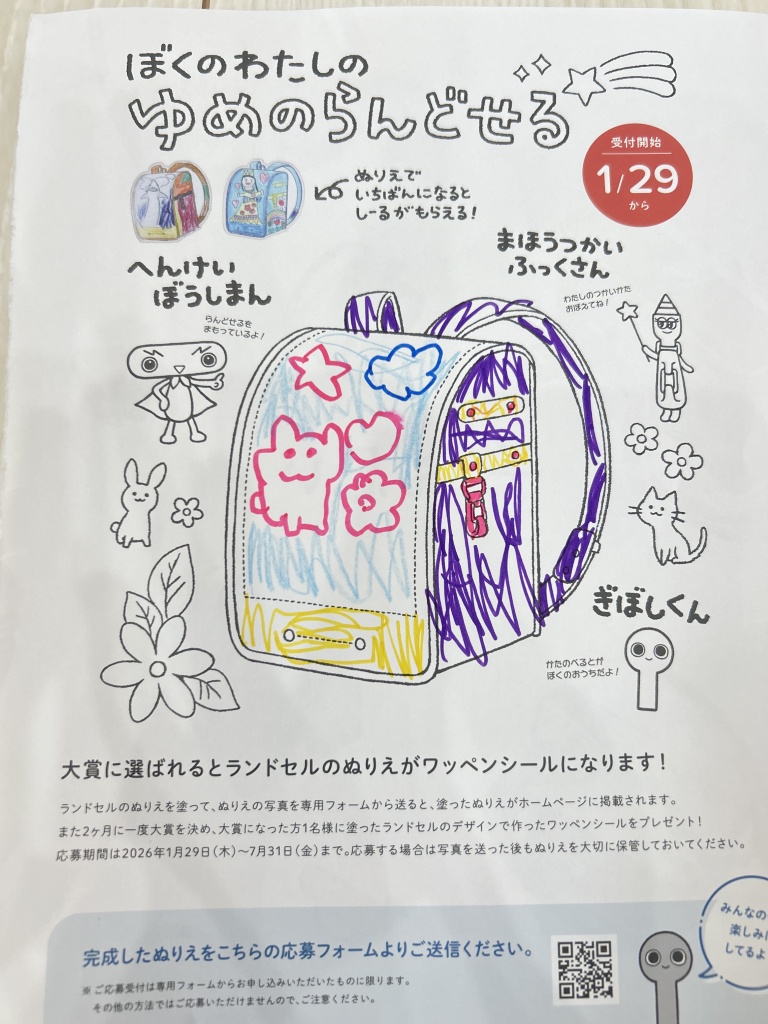 ぼくのわたしの
ゆめのらんどせる
受付開始
1/29
から
ぬりえで
いちばんになると
しーるがもらえる！
まほうつかい
ふっくさん
わたしのつかいかた
おぼえてね！
へんけい
ぼうしまん
らんどせるを
まもっているよ！
ぎぼしくん
かたのべるとが
ぼくのおうちだよ！
大賞に選ばれるとランドセルのぬりえがワッペンシールになります！
ランドセルのぬりえを塗って、ぬりえの写真を専用フォームから送ると、塗ったぬりえがホームページに掲載されます。
また2ヶ月に一度大賞を決め、大賞になった方1名様に塗ったランドセルのデザインで作ったワッペンシールをプレゼント！
応募期間は2026年1月29日(木)〜7月31日(金)まで。応募する場合は写真を送った後もぬりえを大切に保管しておいてください。
完成したぬりえをこちらの応募フォームよりご送信ください。
※ご応募受付は専用フォームからお申し込みいただいたものに限ります。
その他の方法ではご応募いただけませんので、ご注意ください。
みんなの
楽しみに
してるよ